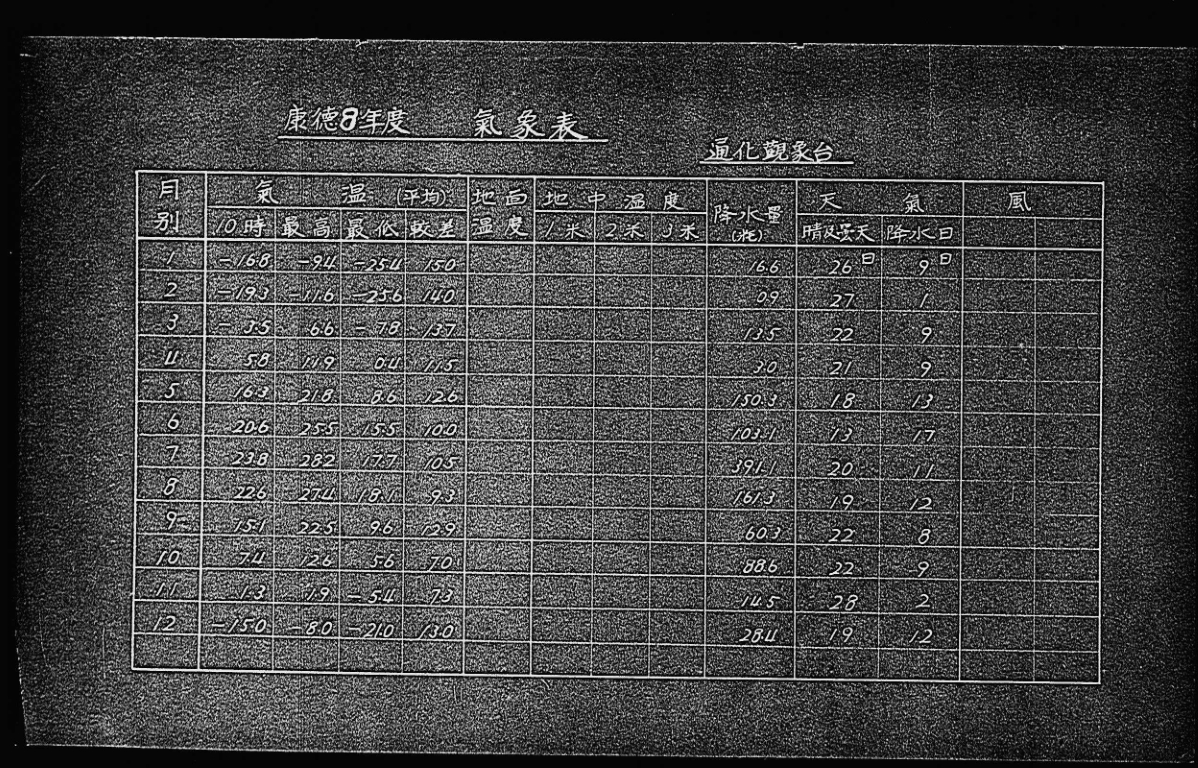 康德8年度 氣象表
通化觀象台
月別 氣溫(平均) 地面溫度 地中溫度 降水量(粍) 天氣 風
10時 最高 最低 較差 1米 2米 3米 晴及曇天 降水日
1 -16.8 -9.4 -25.4 15.0 16.6 26日 9日
2 -19.3 -11.6 -25.6 14.0 0.9 27 1
3 -3.5 6.6 -7.8 13.7 13.5 22 9
4 5.8 11.9 0.4 11.5 3.0 21 9
5 16.3 21.8 8.6 12.6 150.3 18 13
6 20.6 25.5 15.5 10.0 103.1 13 17
7 23.8 28.2 17.7 10.5 391.1 20 11
8 22.6 27.4 18.1 9.3 161.3 19 12
9 15.1 22.5 9.6 12.9 60.3 22 8
10 7.4 12.6 5.6 7.0 88.6 22 9
11 1.3 1.9 -5.4 7.3 14.5 28 2
12 -15.0 -8.0 -21.0 13.0 28.4 19 12